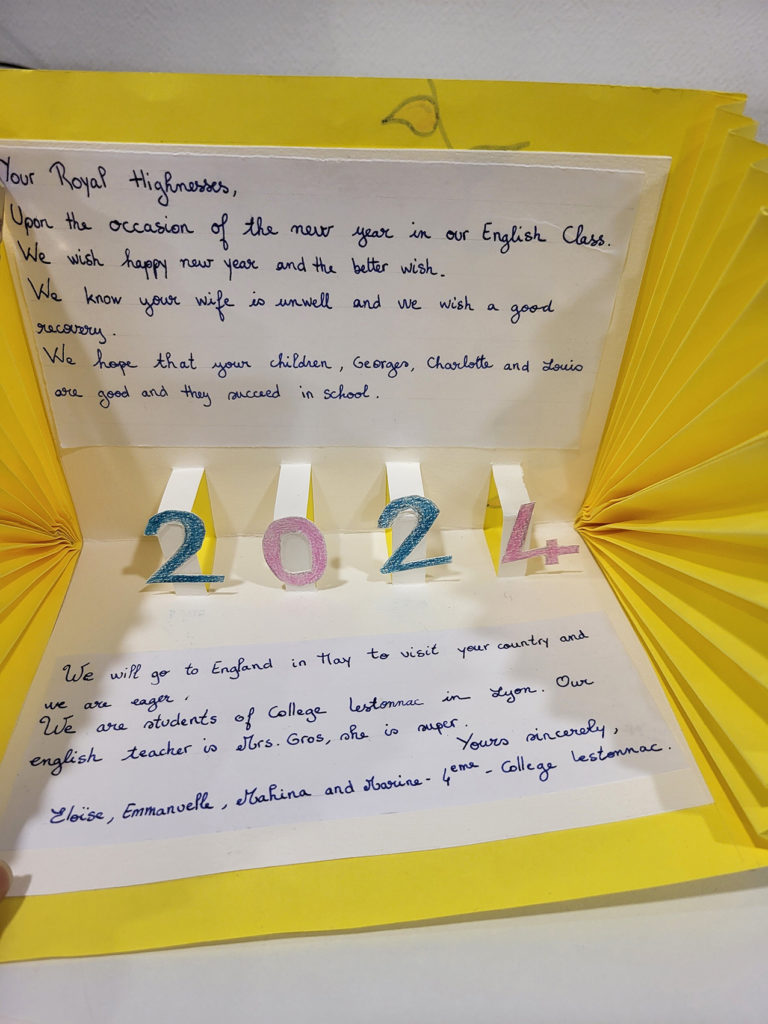 Your Royal Highnesses,
Upon the occasion of the new year in our English Class.
We wish happy new year and the better wish.
We know your wife is unwell and we wish a good
recovery.
We hope that your children, Georges, Charlotte and Louis
are good and they succeed in school.
2024
We will go to England in May to visit your country and
we are eager.
We are students of College Lestonnac in Lyon. Our
english teacher is Mrs. Gros, she is super.
Yours sincerely,
Eloïse, Emmanuelle, Mahina and Marine - 4eme - College Lestonnac.